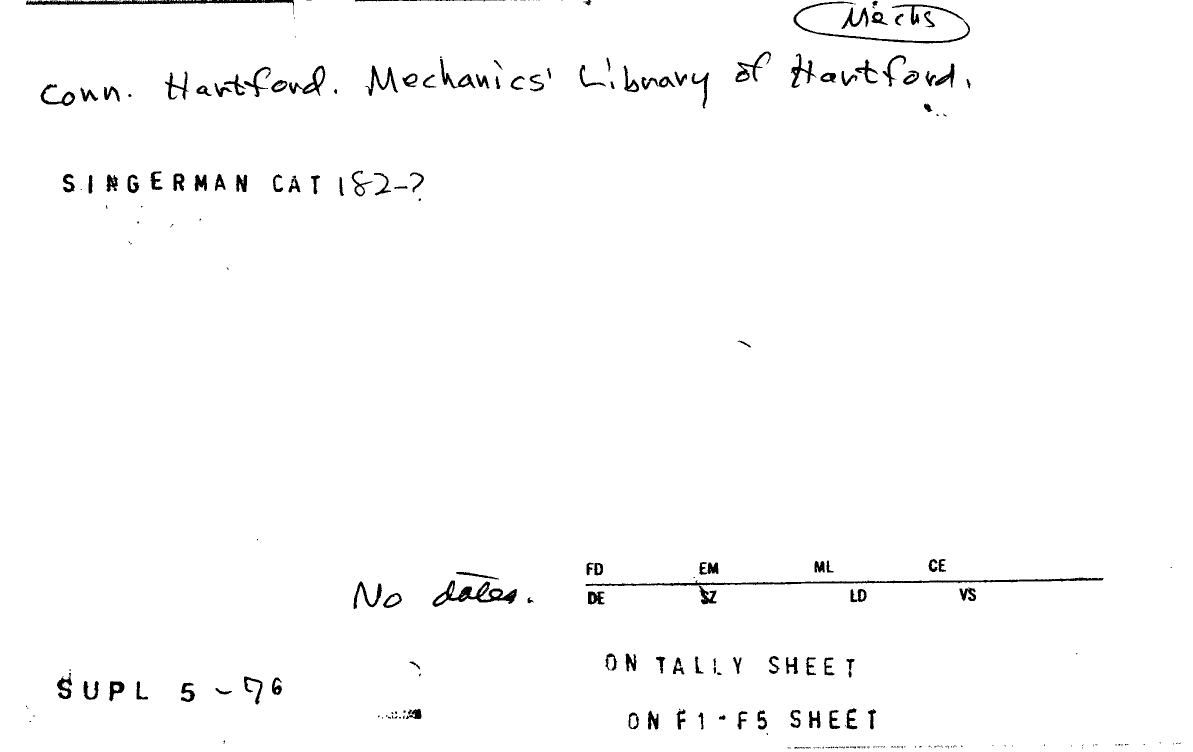 Mechs
Conn. Hartford. Mechanics' Library of Hartford.
SINGERMAN CAT 182-?
FD EM ML CE
No dates.
DE SZ LD VS
ON TALLY SHEET
SUPL 5-76
ON F1-F5 SHEET